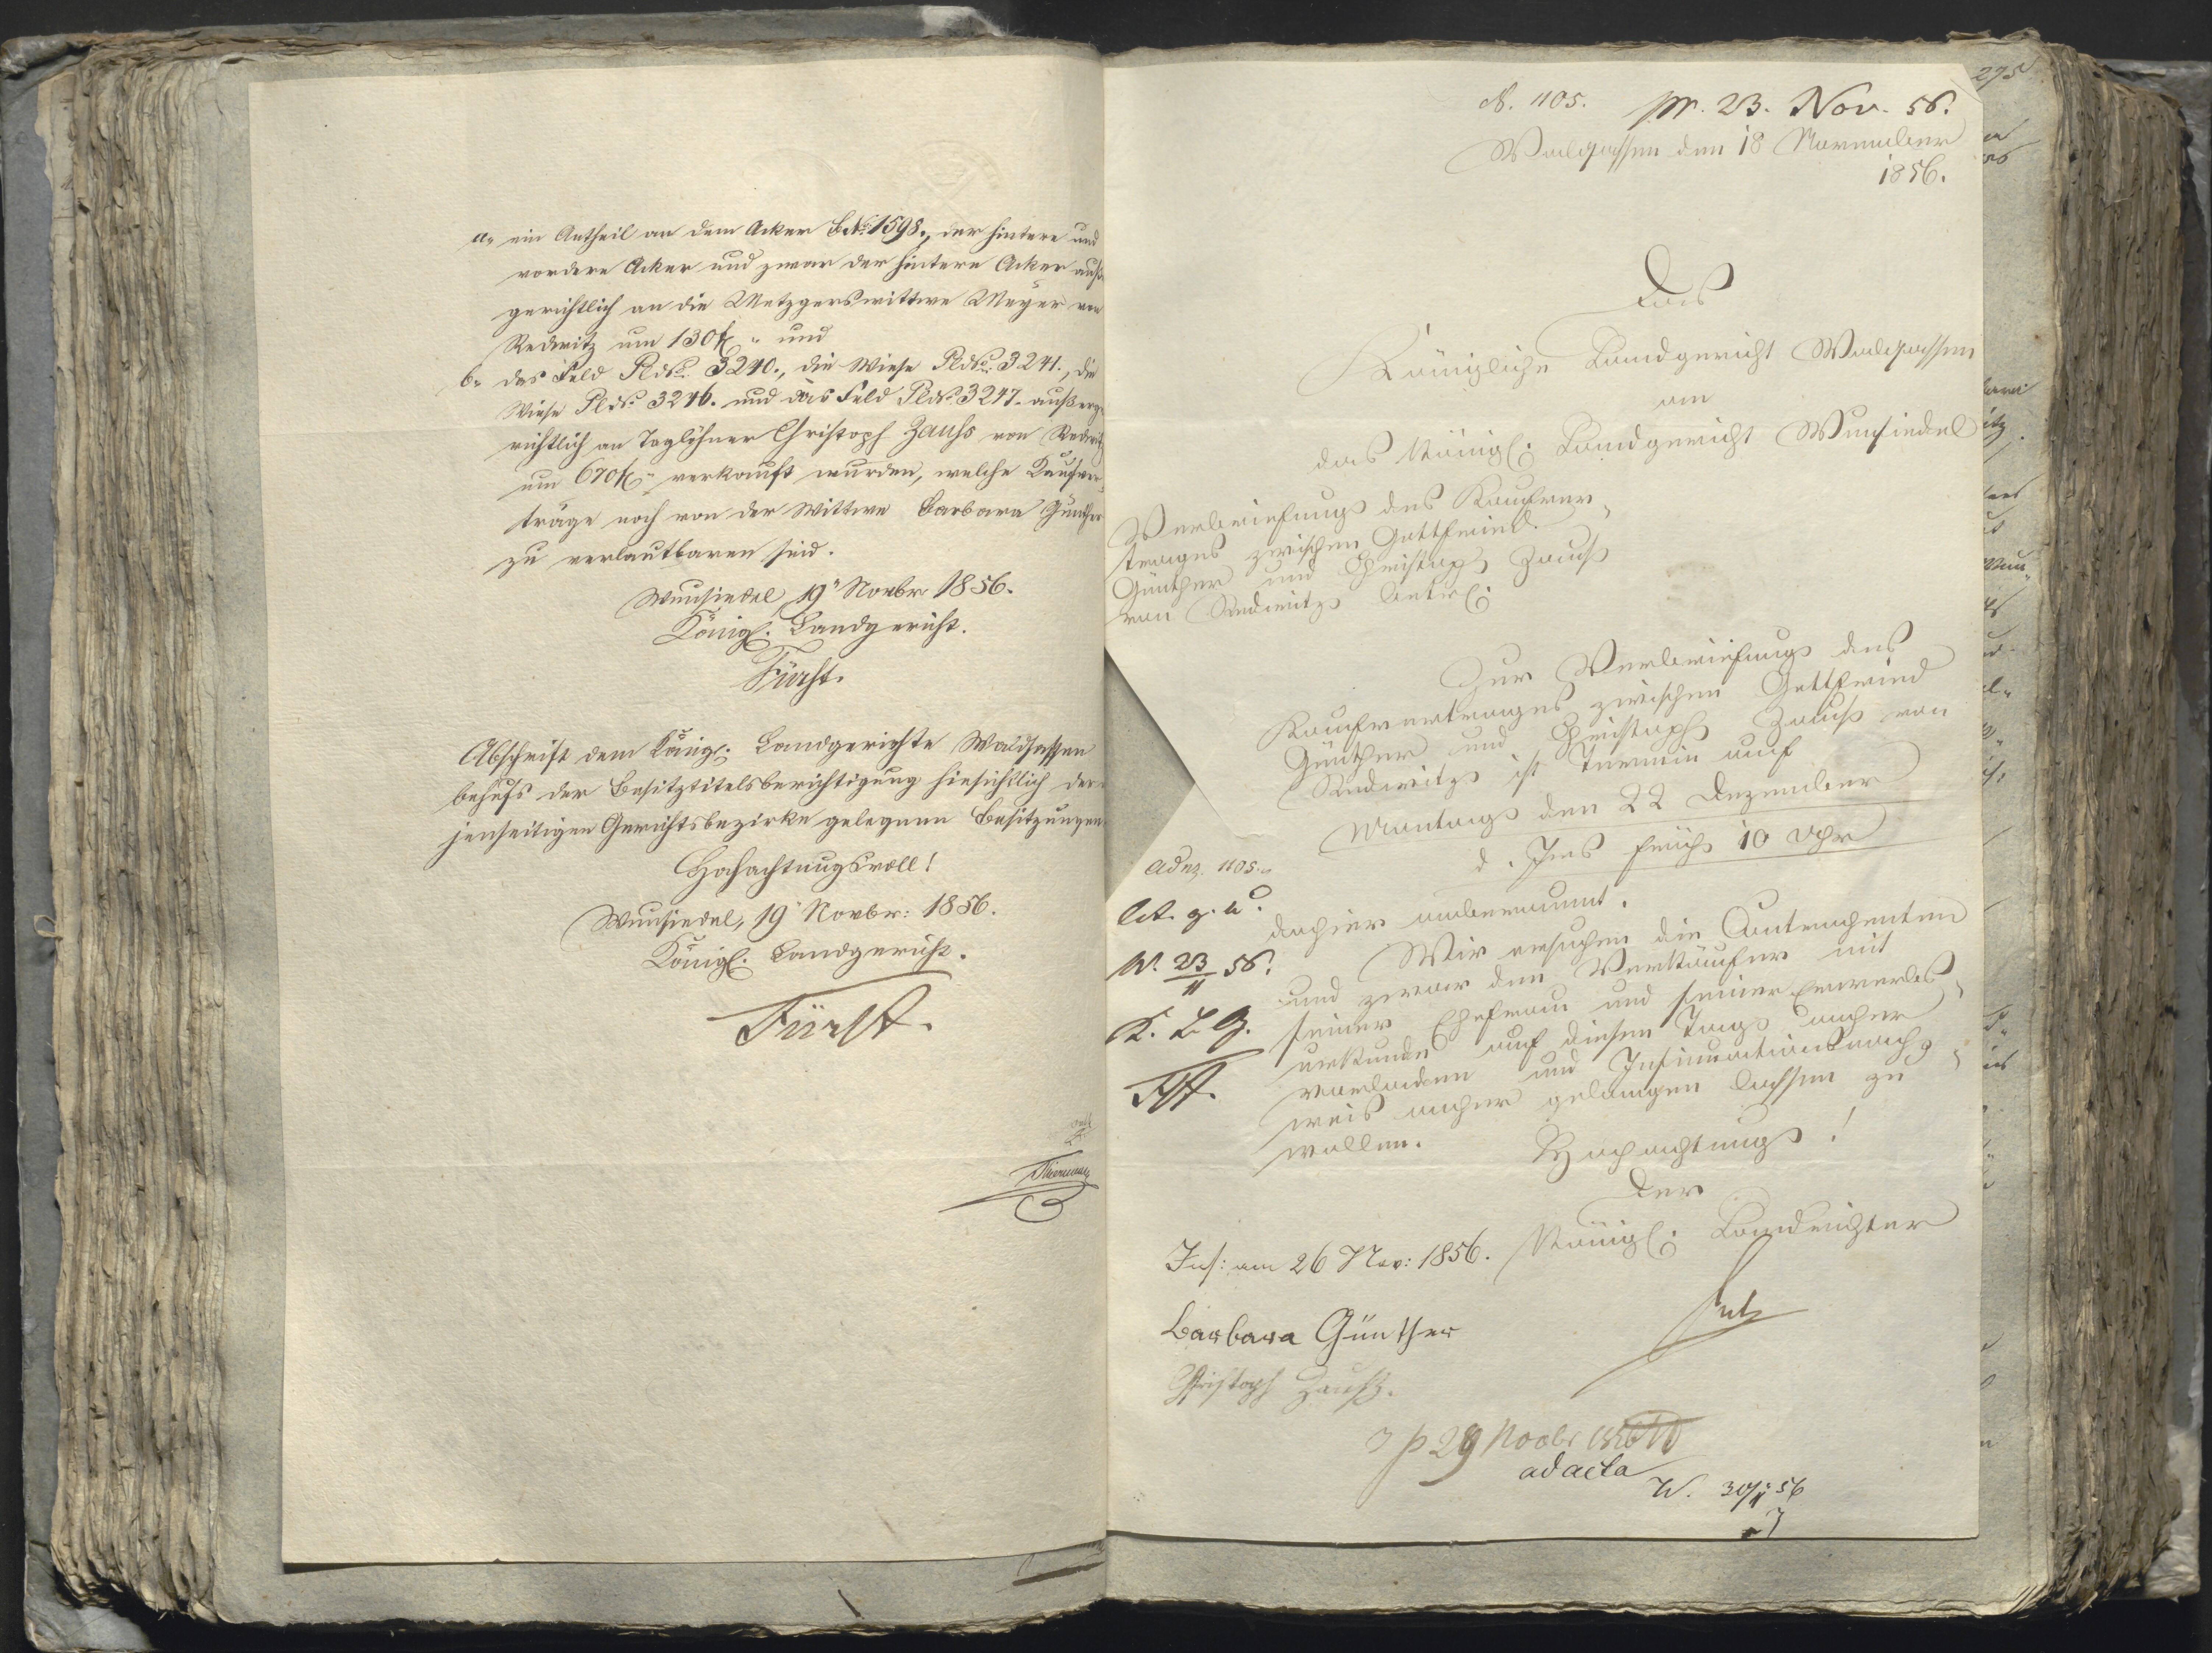 a., ein Antheil an dem Acker B.No. 1598., der hintere und
vordere Acker und zwar der hintere Acker auße
gerichtlich an die Metzgerswittwe Meyer von
Redwitz um 130 f. und
b., das Feld Pl.No. 3240., die Wiese Pl.No. 3241., die
Wiese Pl.No. 3246. und das Feld Pl.No. 3247. außerge
richtlich an Taglöhner Christoph Zauhs von Redwitz
um 670 f. verkauft wurden, welche Kaufver-
träge noch von der Wittwe Barbara Günther
zu verlautbaren sind.
Wunsiedel, 19 Novbr 1856.
Königl. Landgericht.
Fürst.
Abschrift dem Königl. Landgerichte Waldsassen
behufs der Besitztitelsberichtigung hinsichtlich der
jenseitigen Gerichtsbezirke gelegenen Besitzungen
Hochachtungsvoll!
Wunsiedel, 19 Novbr: 1856.
Königl. Landgericht.
Fürst.
275
N. 1105. pr. 23. Nov. 56.
Waldsassen den 18 November
1856.
Das
Königliche Landgericht Waldsassen
an
das Königl: Landgericht Wunsiedel
Verbriefung des Kaufver-
trages zwischen Gottfried
Günther und Christoph Zauß
von Redwitz betrl:
Zur Verbriefung des
Kaufvertrages zwischen Gottfried
Günther und Christoph Zauß von
Redwitz ist Termin auf
Montag den 22 Dezember
d. Jrs früh 10 Uhr
dahier anberaumt.
Wir ersuchen die Contrahenten
und zwar den Verkäufer mit
seiner Ehefrau und seiner Erwerbs-
urkunde auf diesen Tag anher
vorladen und Insinuationsnach-
weis anher gelangen lassen zu
wollen.
Hochachtung!
Der
Königl: Landrichter
ad No. 1105.
W. 23/11 56.
K. L. G.
Fst.
Ins: am 26 Nov: 1856.
Barbara Günther
Christoph Zauhs.
29 Novbr 1856
ad acta
W. 30/11 56